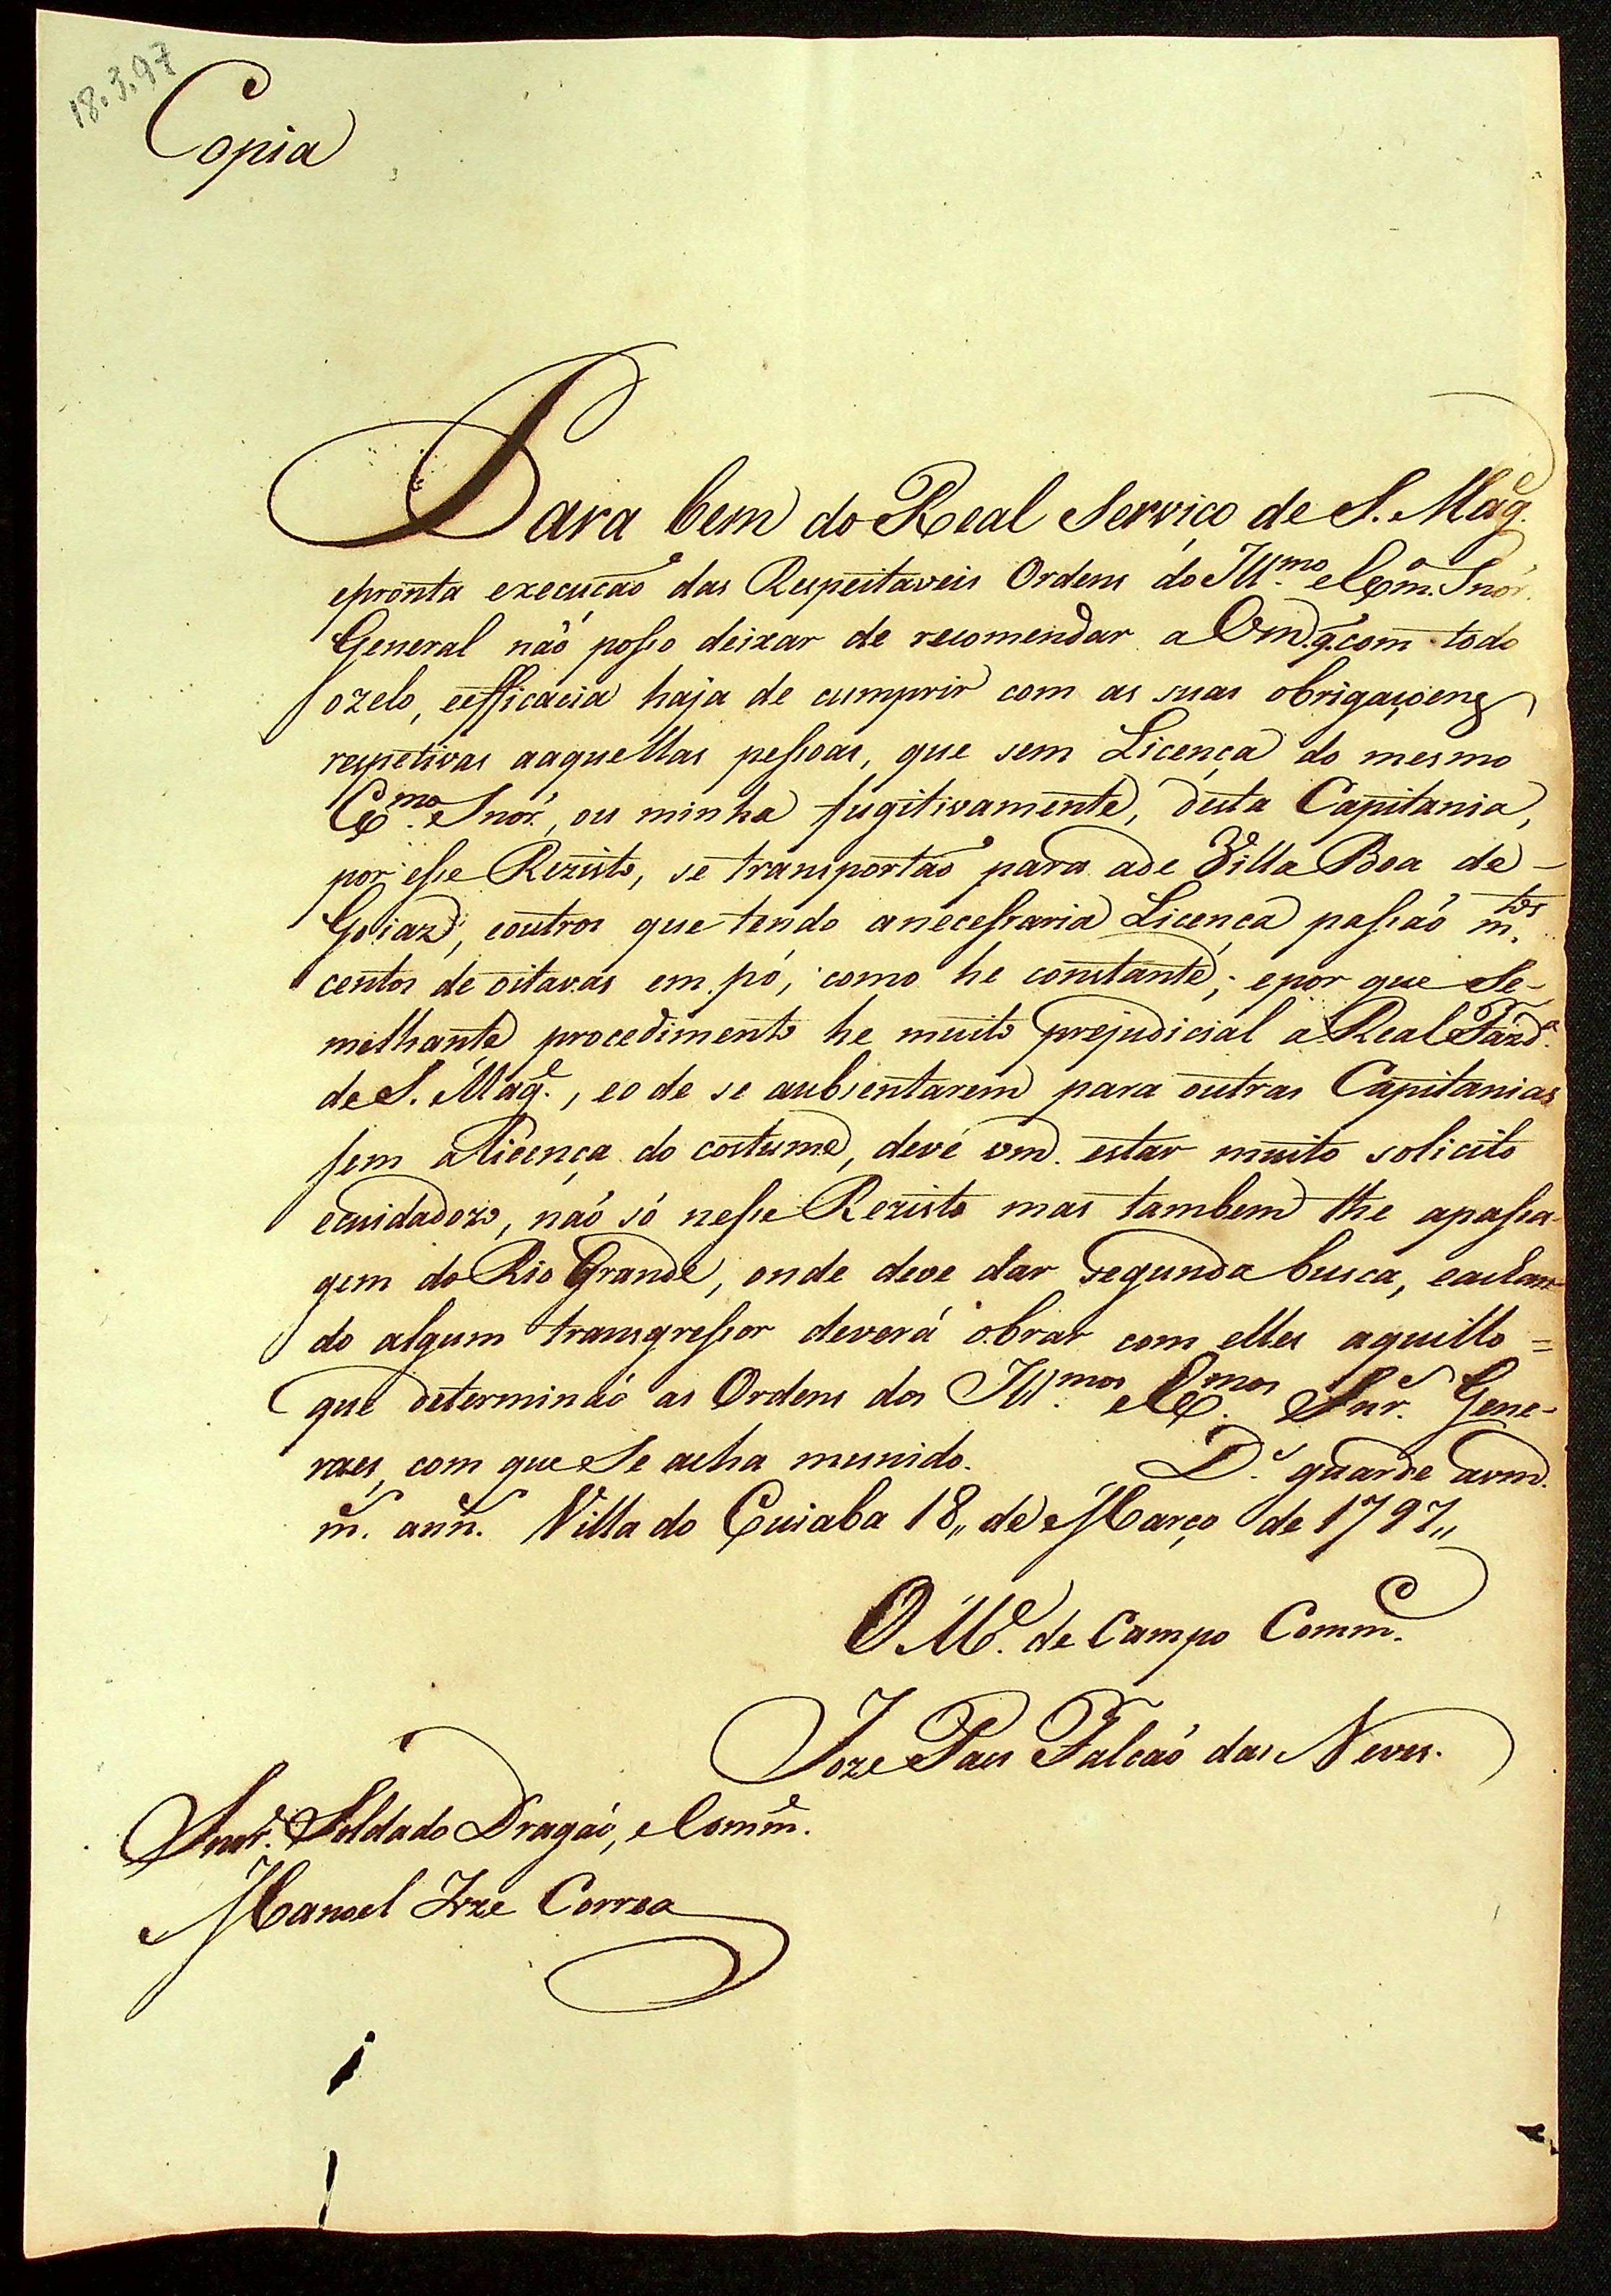 18.3.97
Copia
Para bem do Real Serviço de S. Mag.e
epronta execução das Respeitaveis Ordens do Ill.mo eExm.o Snor.
General não posso deixar de recomendar a Vm.ce q. com todo
ozelo, eefficacia haja de cumprir com as suas obrigaçoens
respetivas aaquellas pessoas, que sem Licença do mesmo
Ex.mo Snor., ou minha fugitivamente, desta Capitania,
por esse Rezisto, se transportão para ade Villa Boa de
Goiaz, eoutros que tendo anecessaria Licença passão m.tos
centos de oitavas em pó, como he constante; epor que Se-
melhante procedimento he muito prejudicial a Real Fazd.a
de S. Mag.e, eo de se aubsentarem para outras Capitanias
sem aLicença do costume, deve vm.ce estar muito solicito
ecuidadozo, não só nesse Rezisto mas tambem the apassa-
gem do Rio Grande, onde deve dar segunda busca, eachan-
do algum transgressor deverá obrar com elles aquillo =
que determinão as Ordens dos Ill.mos eEx.mos Snr.es Gene-
raes, com que Se acha munido. D.s guarde avm.ce
m.s ann.s Villa do Cuiaba 18,, de Março de 1797,,
O M.e de Campo Comm.e
Joze Paes Falcão das Neves.
Snor. Soldado Dragão, eComm.e
Manoel Joze Correa